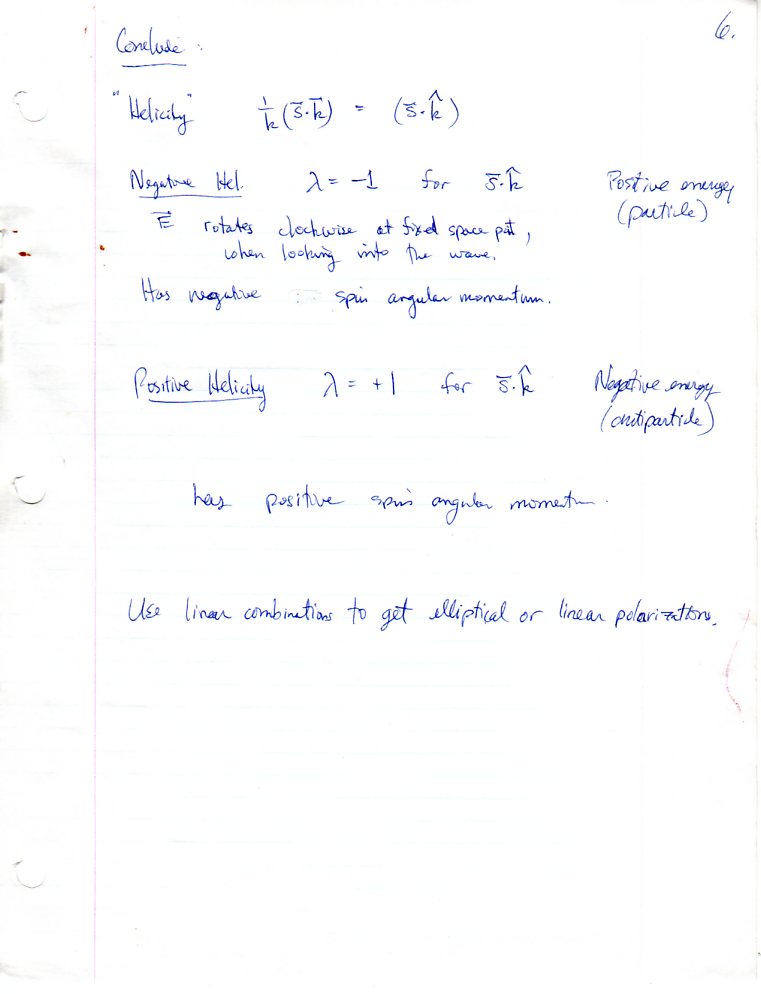 6.
Conclude :
"Helicity" 1/k (s̄·k̄) = (s̄·k̂)
Negative Hel. λ = -1 for s̄·k̂ Positive energy
(particle)
E̅ rotates clockwise at fixed space pt,
when looking into the wave.
Has negative spin angular momentum.
Positive Helicity λ = +1 for s̄·k̂ Negative energy
(antiparticle)
has positive spin angular momentum.
Use linear combinations to get elliptical or linear polarizations.